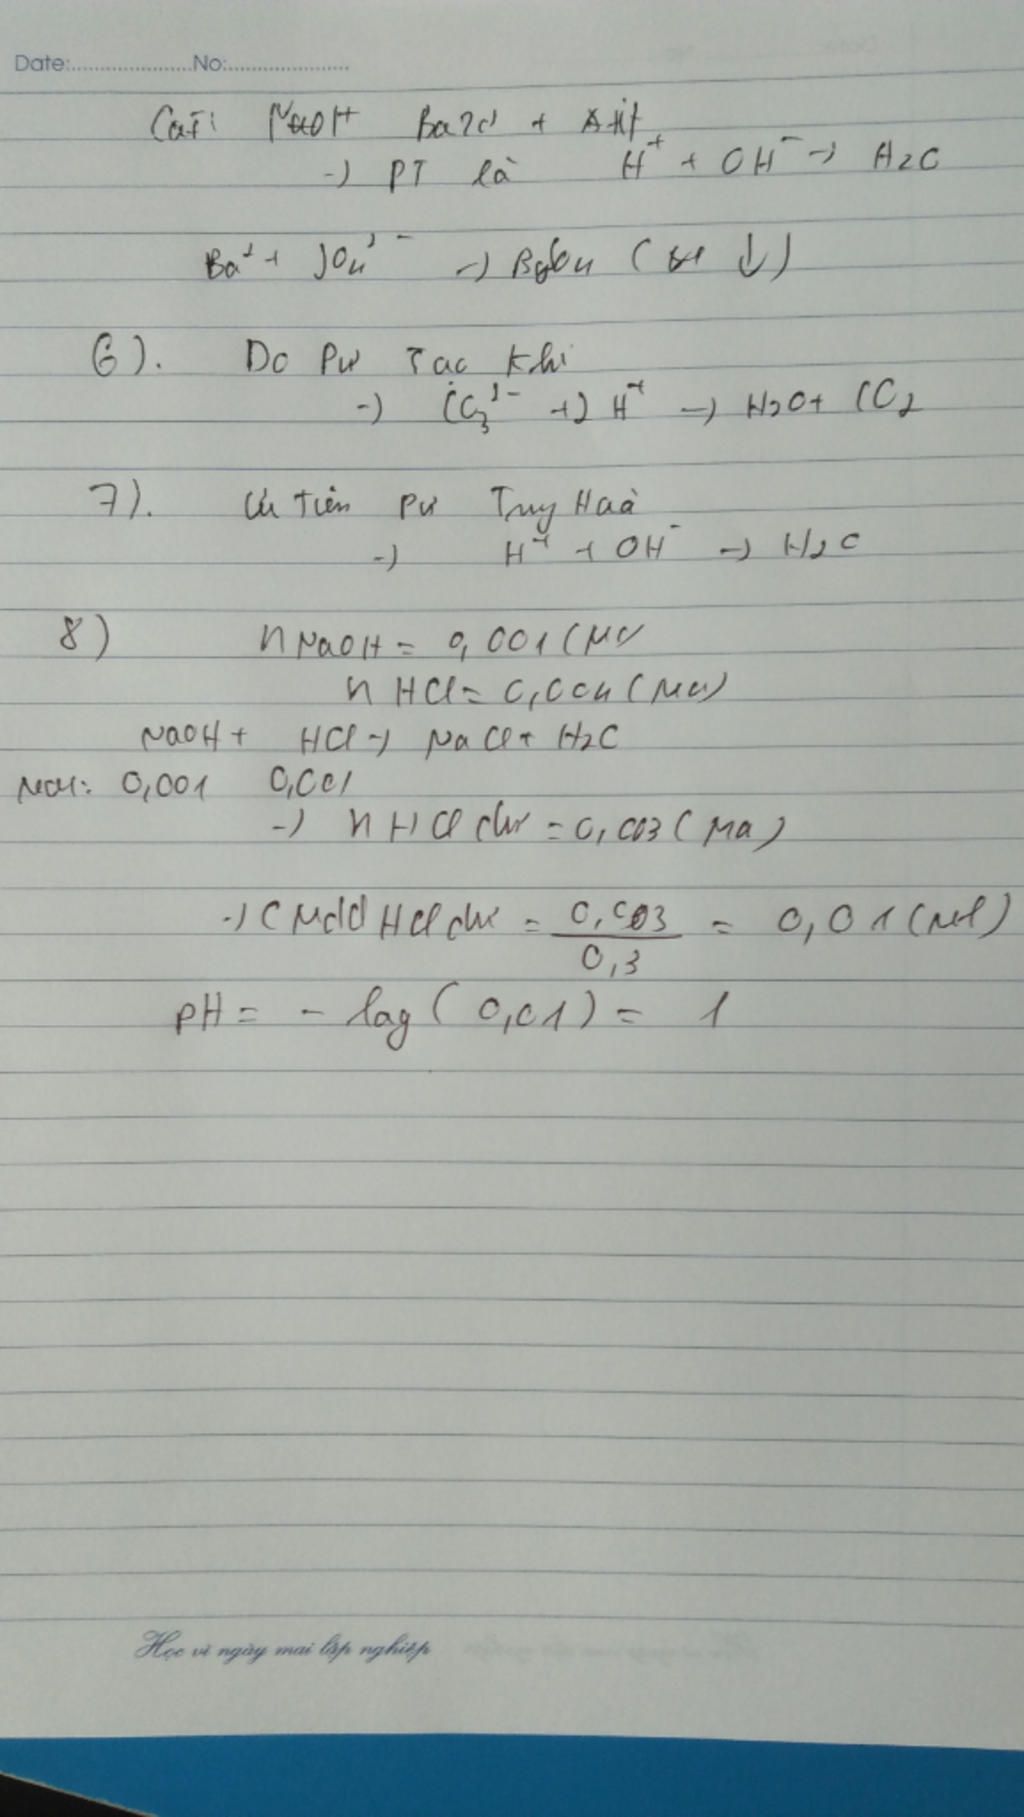 Date:.....................No:.....................
NaOH
→ PT là H⁺ + OH⁻ → H2O
6). Do Pư Tạo Khí
→ CO₃²⁻ + 2H⁺ → H2O + CO2
7). Ưu Tiên pư Trung Hoà
→ H⁺ + OH⁻ → H2O
8) nNaOH = 0,001 (Mol
nHCl = 0,004 (Mol)
NaOH + HCl → NaCl + H2O
Mol: 0,001 0,001
→ nHCl dư = 0,003 (Mol)
→ CMdd HCl dư = 0,003/0,3 = 0,01 (M)
pH = - log (0,01) = 1
Học vì ngày mai lập nghiệp